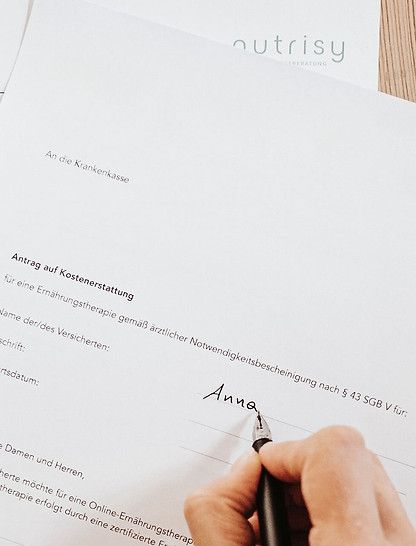 nutrisy
An die Krankenkasse
Antrag auf Kostenerstattung
für eine Ernährungstherapie gemäß ärztlicher Notwendigkeitsbescheinigung nach § 43 SGB V für:
Name der/des Versicherten:
Anna
Damen und Herren,
möchte für eine
therapie erfolgt durch eine zertifizierte